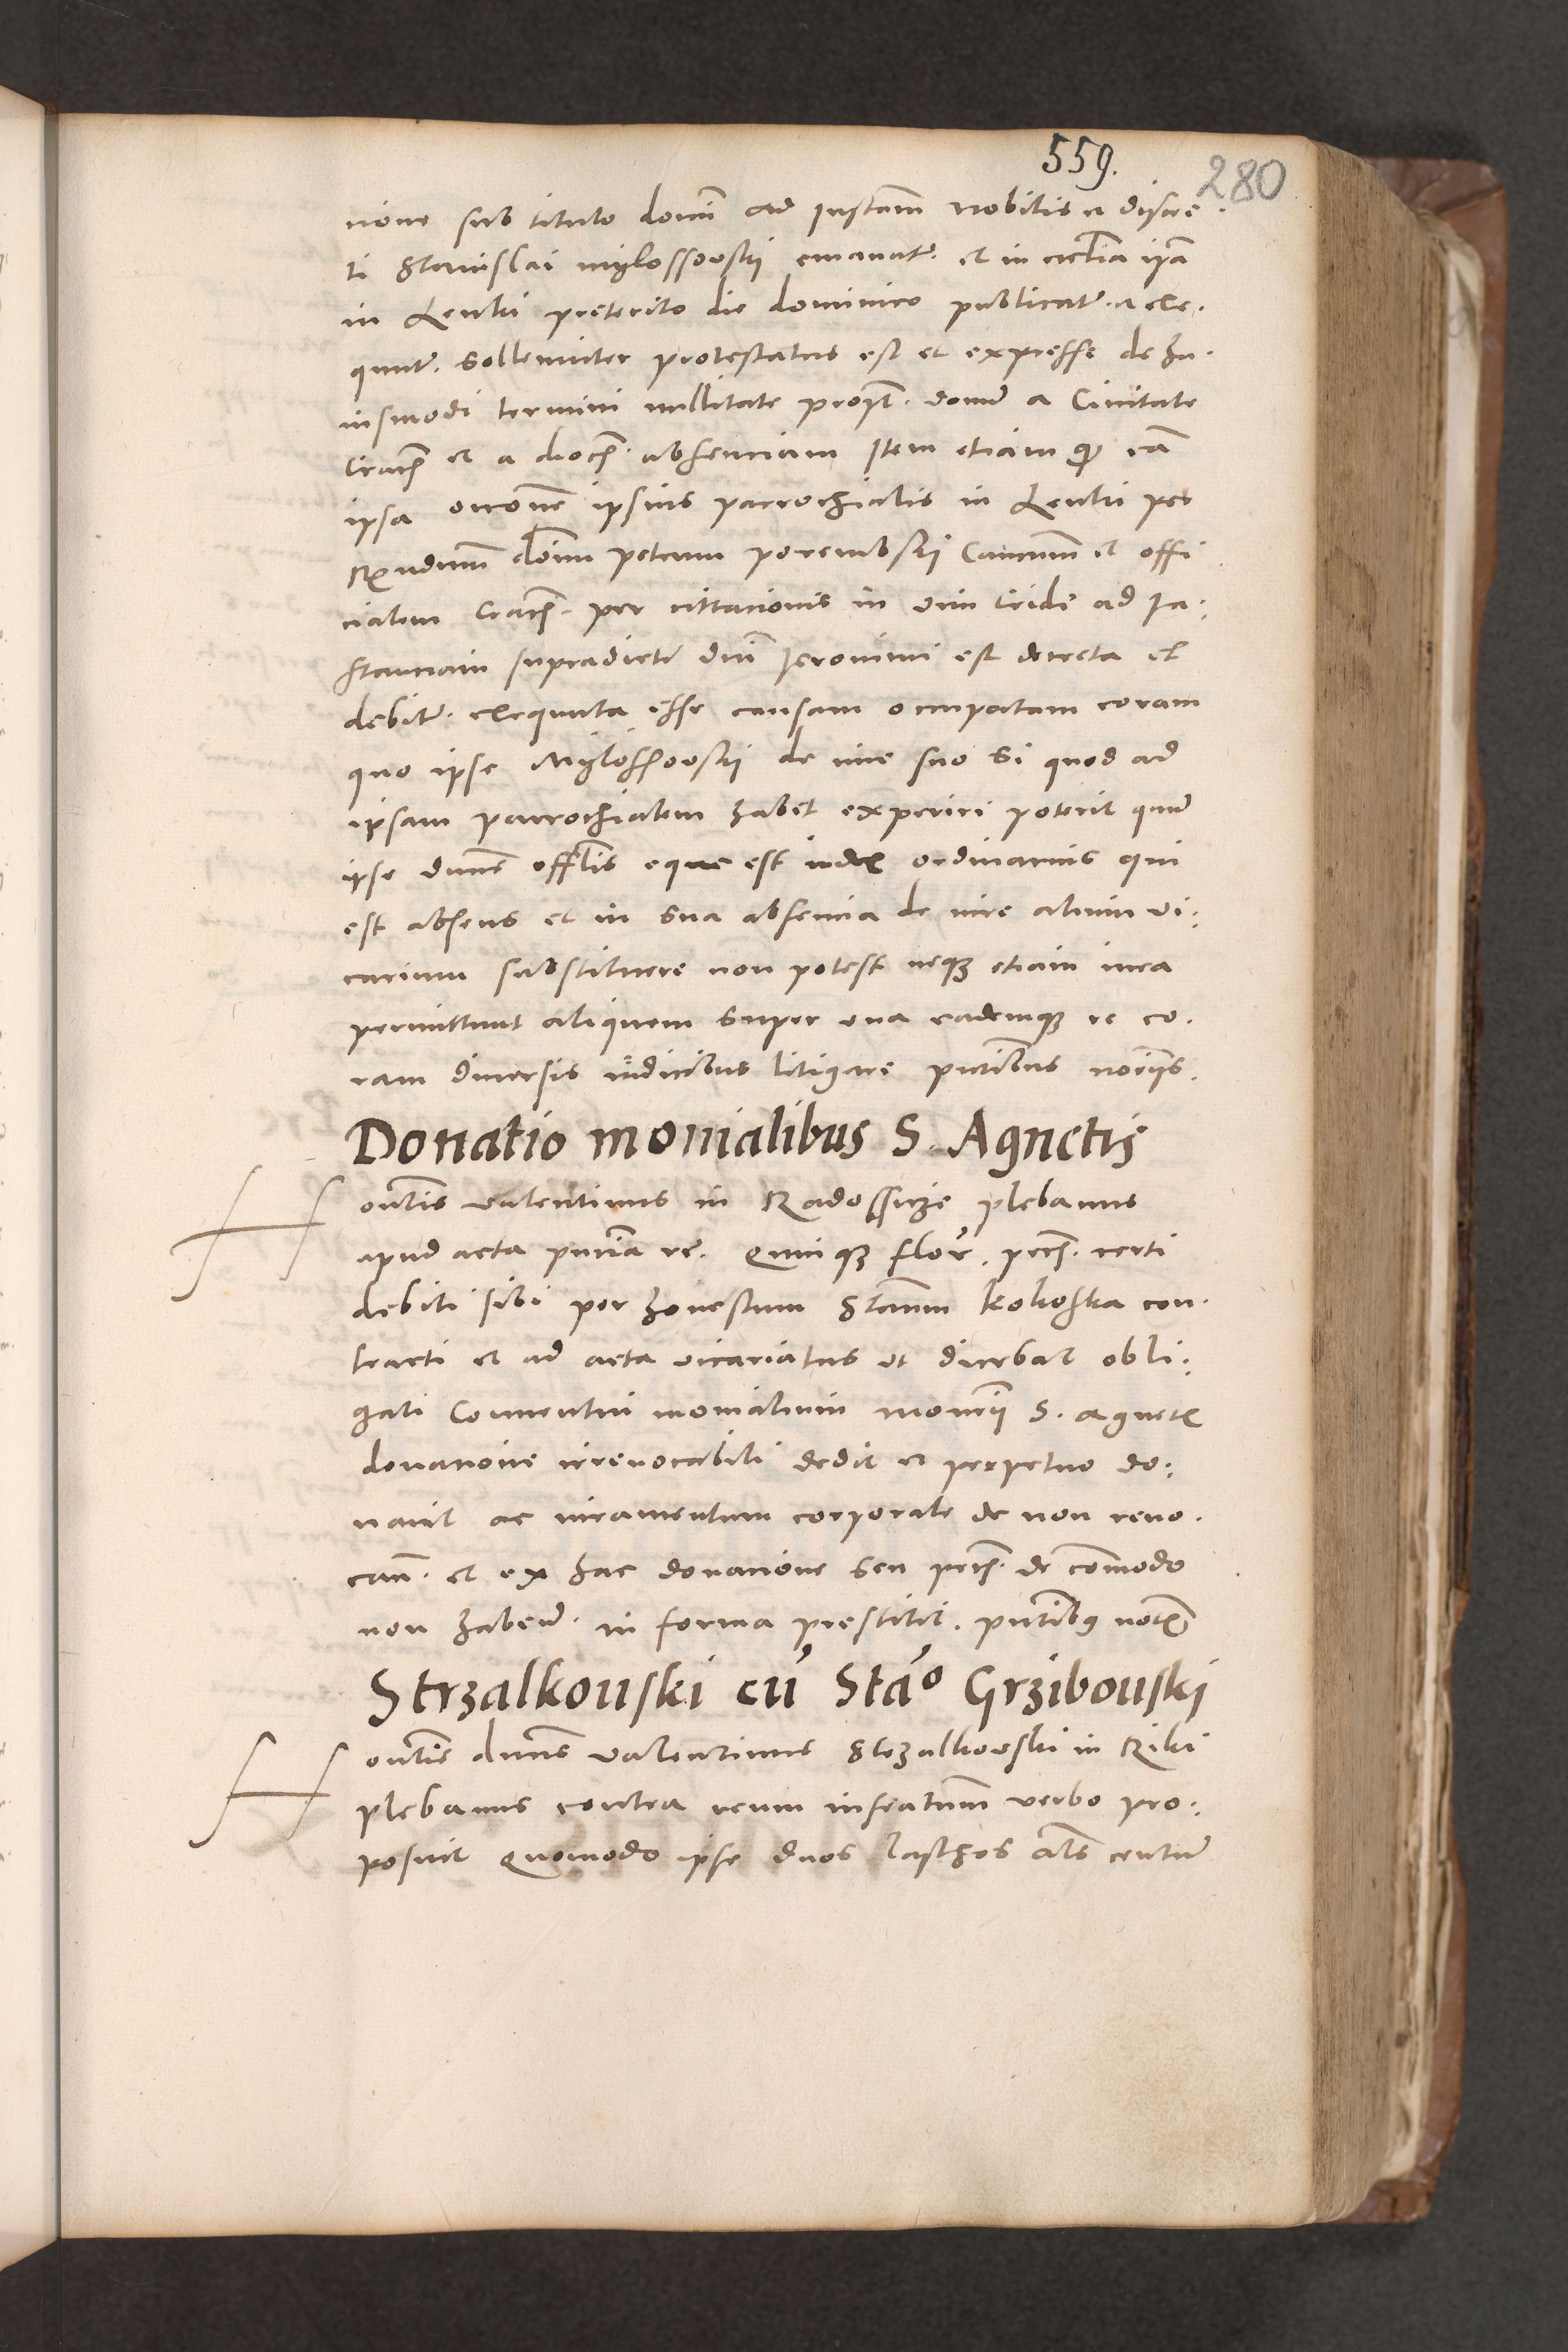 559.
280
cione sub titulo domi ad Instam nobilis a discre
ti Stanislai myslossovskij emanatr. et in ecclia ipa
in Lenki preterito die dominico publicatr. a exe.
quutr. sollemniter protestatus est et expresse de hu.
iusmodi termini nullitate propt. domi a Ciuitate
Crac et a dioc. absenciam Item etiam cā
ipsa ipsius parrochialis in Lenki per
Rndum dom petrum porembskij Canicum et offi
cialem Crac. per cittacionis in vim Cride ad In.
stanciam supradicti dni Jeronimi est decreta et
debitr. exequuta esse causam occupatam coram
quo ipse Myslossovskij de iure suo si quod ad
ipsam parrochialem habet experiri poterit quum
ipse dnus offlis eque est iudex ordinarius qui
est absens et in sua absencia de iure alium vi.
carium substituere non potest neq3 etiam iura
permittunt aliquem super una eademq3 re co.
ram diuersis iudicibus litigare pntibus noriis.
Donatio monialibus S. Agnetis
Hontis valentinus in Radossicze plebanus
apud acta pncia re. quinq3 flor. pec. certi
debiti sibi per honestum Stanm kokoska con.
tracti et ad acta vicariatus ut dicebat obli.
gati Conuentui monialium monrii S. agnetis
donacione irreuocabili dedit et perpetuo do.
nauit ac iuramentum corporale de non reuo.
can. et ex hac donacione seu pec. de commodo
non habend. in forma prestitit. pntib9 notis
Strzalkouski cū Stāo Grzibouski
Hontis dnus valentinus Strzalkovski in Riki
plebanus contra reum infratum verbo pro.
posuit quomodo ipse duos lasthos als centum